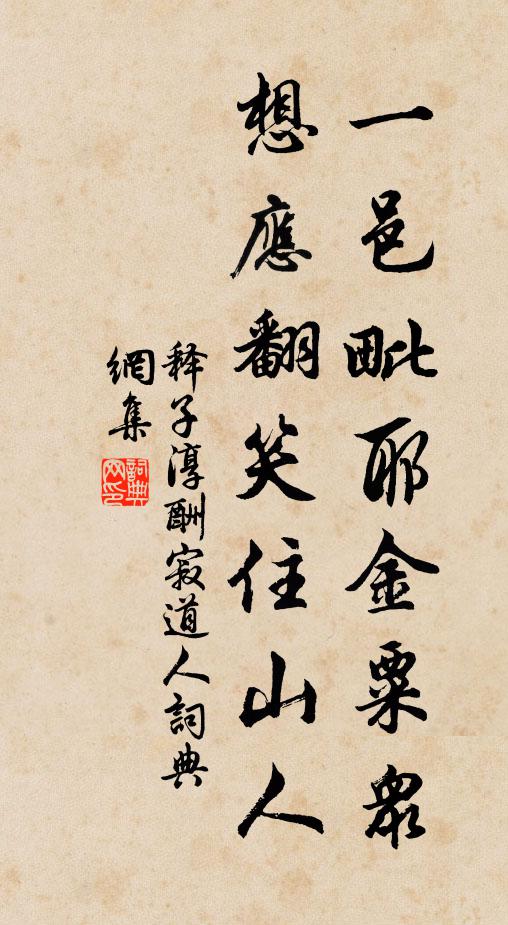 一邑毗耶金粟眾
想應翻笑住山人
释子淳酬寂道人詞典
網集
詞典
网印